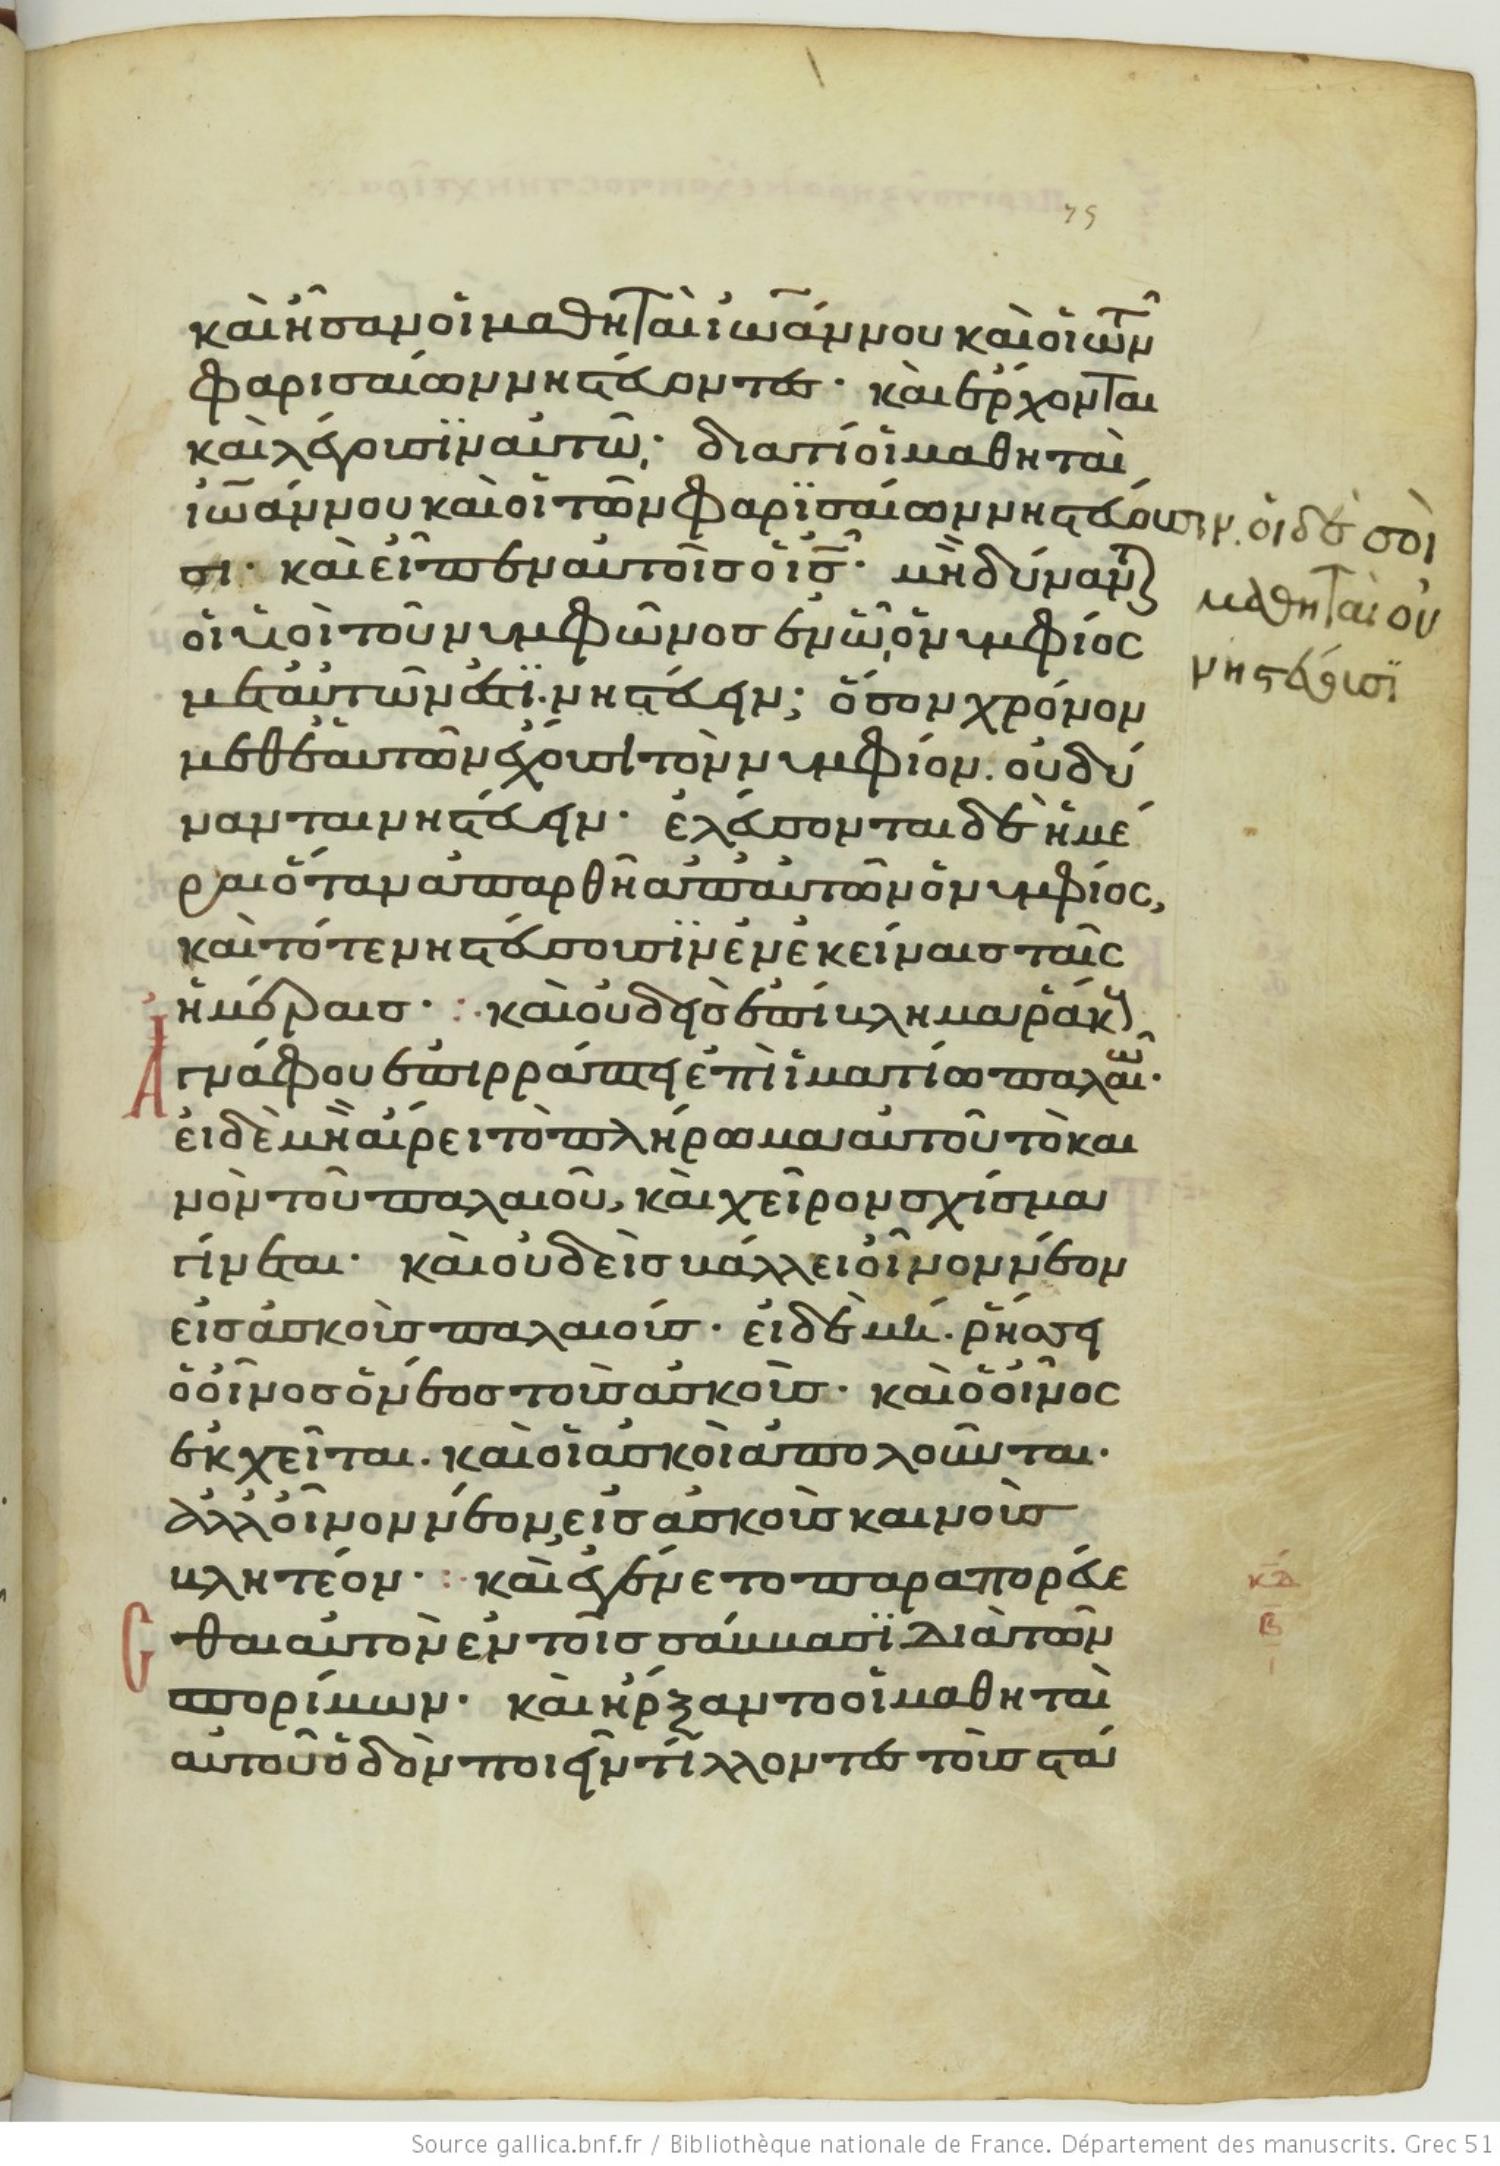 75
καὶ ἦσαν οἱ μαθηταὶ ἰωάννου καὶ οἱ τῶν
φαρισαίων νηστεύοντες· καὶ ἔρχονται
καὶ λέγουσϊν αὐτῶ· διατί οἱ μαθηταὶ
ἰωάννου καὶ οἱ τῶν φαρϊσαίων νηστεύουσιν. οἱ δὲ σοὶ
μαθηταὶ οὐ
νηστεύουσϊ
σι· καὶ εἶπεν αὐτοῖς ὁ ις· μὴ δύναντ
οἱ υἱοὶ τοῦ νυμφῶνος ἐν ὧ ὁ νυμφίος
μετ αὐτῶν ἐστϊ· νηστεύειν; ὅσον χρόνον
μεθ ἑαυτῶν ἔχουσι τὸν νυμφίον. οὐ δύ
νανται νηστεύειν· ἐλεύσονται δὲ ἡμέ
ραι ὅταν ἀπαρθῆ ἀπ αὐτῶν ὁ νυμφίος,
καὶ τότε νηστεύσουσϊν ἐν ἐκείναις ταῖς
ἡμέραις· καὶ οὐδεὶς ἐπίβλημα ῥάκ
Α γνάφου ἐπιρράπτει ἐπὶ ἱματίω παλαιῶ·
εἰ δὲ μὴ αἴρει τὸ πλήρωμα αὐτοῦ τὸ και
νὸν τοῦ παλαιοῦ, καὶ χεῖρον σχίσμα
γίνεται· καὶ οὐδεὶς βάλλει οἶνον νέον
εἰς ἀσκοὺς παλαιούς· εἰ δὲ μή. ῥήσσει
ὁ οἶνος ὁ νέος τοὺς ἀσκοὺς· καὶ ὁ οἶνος
ἐκχεῖται. καὶ οἱ ἀσκοὶ ἀπολοῦνται.
ἀλλ οἶνον νέον, εἰς ἀσκοὺς καινοὺς
βλητέον· καὶ ἐγένετο παραπορεύε
σθαι αὐτὸν ἐν τοῖς σάββασϊ διὰ τῶν
σπορίμων· καὶ ἤρξαντο οἱ μαθηταὶ
αὐτοῦ ὁδὸν ποιεῖν τίλλοντες τοὺς στά
κδ
β